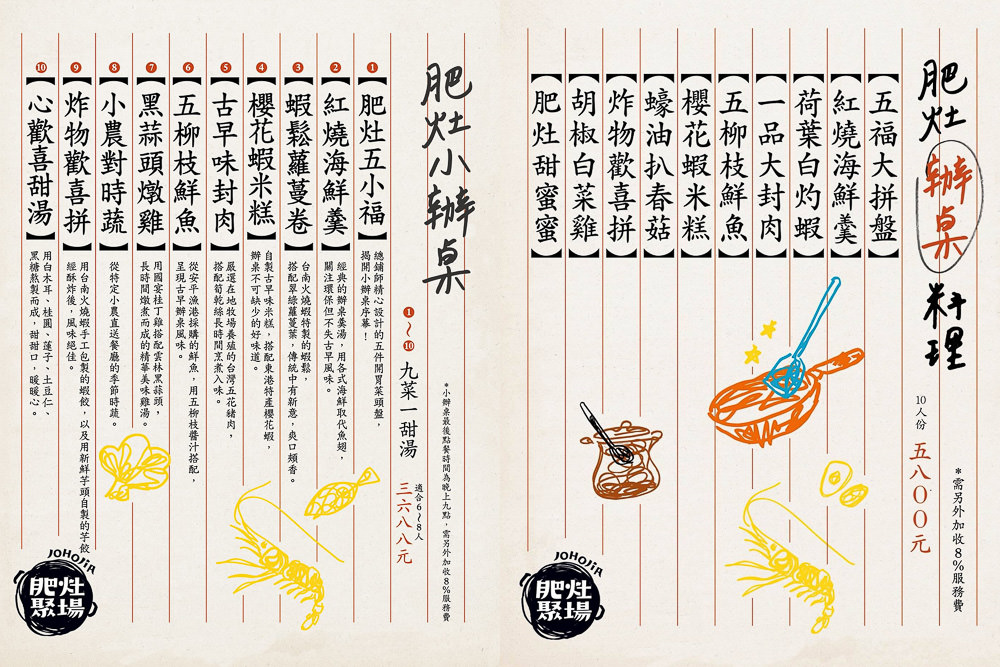 肥灶小辦桌
❶~❿ 九菜一甜湯
適合6~8人
三六八八元
*小辦桌最後點餐時間為晚上九點，需另外加收8%服務費
1
【肥灶五小福】
總鋪師精心設計的五件開胃菜頭盤，
揭開小辦桌序幕！
2
【紅燒海鮮羹】
經典的辦桌羹湯，用各式海鮮取代魚翅，
關注環保但不失古早風味。
3
【蝦鬆蘿蔓卷】
台南火燒蝦特製的蝦鬆，
搭配翠綠蘿蔓葉，傳統中有新意，爽口頰香。
4
【櫻花蝦米糕】
自製古早味米糕，搭配東港特產櫻花蝦，
辦桌不可缺少的好味道。
5
【古早味封肉】
嚴選在地牧場養殖的台灣五花豬肉，
搭配筍乾絲長時間烹煮入味。
6
【五柳枝鮮魚】
從安平漁港採購的鮮魚，用五柳枝醬汁搭配，
呈現古早辦桌風味。
7
【黑蒜頭燉雞】
用國宴桂丁雞搭配雲林黑蒜頭，
長時間燉煮而成的精華美味雞湯。
8
【小農對時蔬】
從特定小農直送餐廳的季節時蔬。
9
【炸物歡喜拼】
用台南火燒蝦手工包製的蝦餃，以及用新鮮芋頭自製的芋餃
經酥炸後，風味絕佳。
10
【心歡喜甜湯】
用白木耳、桂圓、蓮子、土豆仁、
黑糖熬製而成，甜甜口，暖暖心。
JOHOJIA
肥灶
聚場
肥灶辦桌料理
10人份 五八００元
*需另外加收8%服務費
【五福大拼盤】
【紅燒海鮮羹】
【荷葉白灼蝦】
【一品大封肉】
【五柳枝鮮魚】
【櫻花蝦米糕】
【蠔油扒春菇】
【炸物歡喜拼】
【胡椒白菜雞】
【肥灶甜蜜蜜】
JOHOJIA
肥灶
聚場